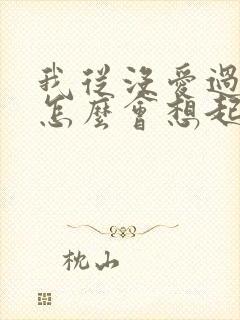 我從沒愛過
怎麼會想起
枕山